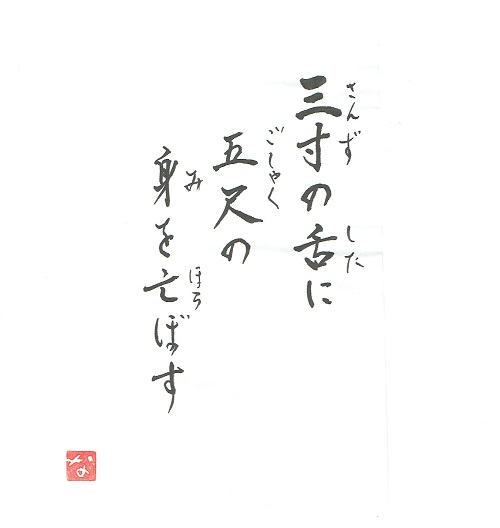 三寸の舌に
さんず
した
五尺の
ごしゃく
身を亡ぼす
み
ほろ